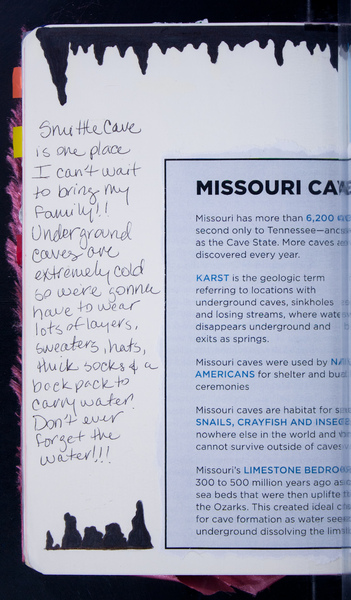 Smittle Cave
is one place
I can't wait
to bring my
Family!!
Underground
caves are
extremely cold
so we're gonna
have to wear
lots of layers,
sweaters, hats,
thick socks & a
backpack to
carry water.
Don't ever
forget the
water!!!
MISSOURI
Missouri has more than 6,200
second only to Tennessee—
as the Cave State. More caves
discovered every year.
KARST is the geologic term
referring to locations with
underground caves, sinkholes
and losing streams, where
disappears underground and
exits as springs.
Missouri caves were used by
AMERICANS for shelter and
ceremonies
Missouri caves are habitat for
SNAILS, CRAYFISH AND
nowhere else in the world and
cannot survive outside of caves
Missouri's LIMESTONE
300 to 500 million years ago
sea beds that were then
the Ozarks. This created ideal
for cave formation as water
underground dissolving the